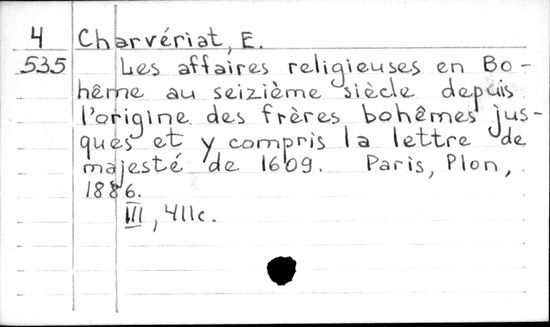 4 Charvériat, E.
535 Les affaires religieuses en Bo-
hême au seizième siècle depuis
l'origine des frères bohêmes jus-
ques et y compris la lettre de
majesté de 1609. Paris, Plon,
1886.
III, 411c.